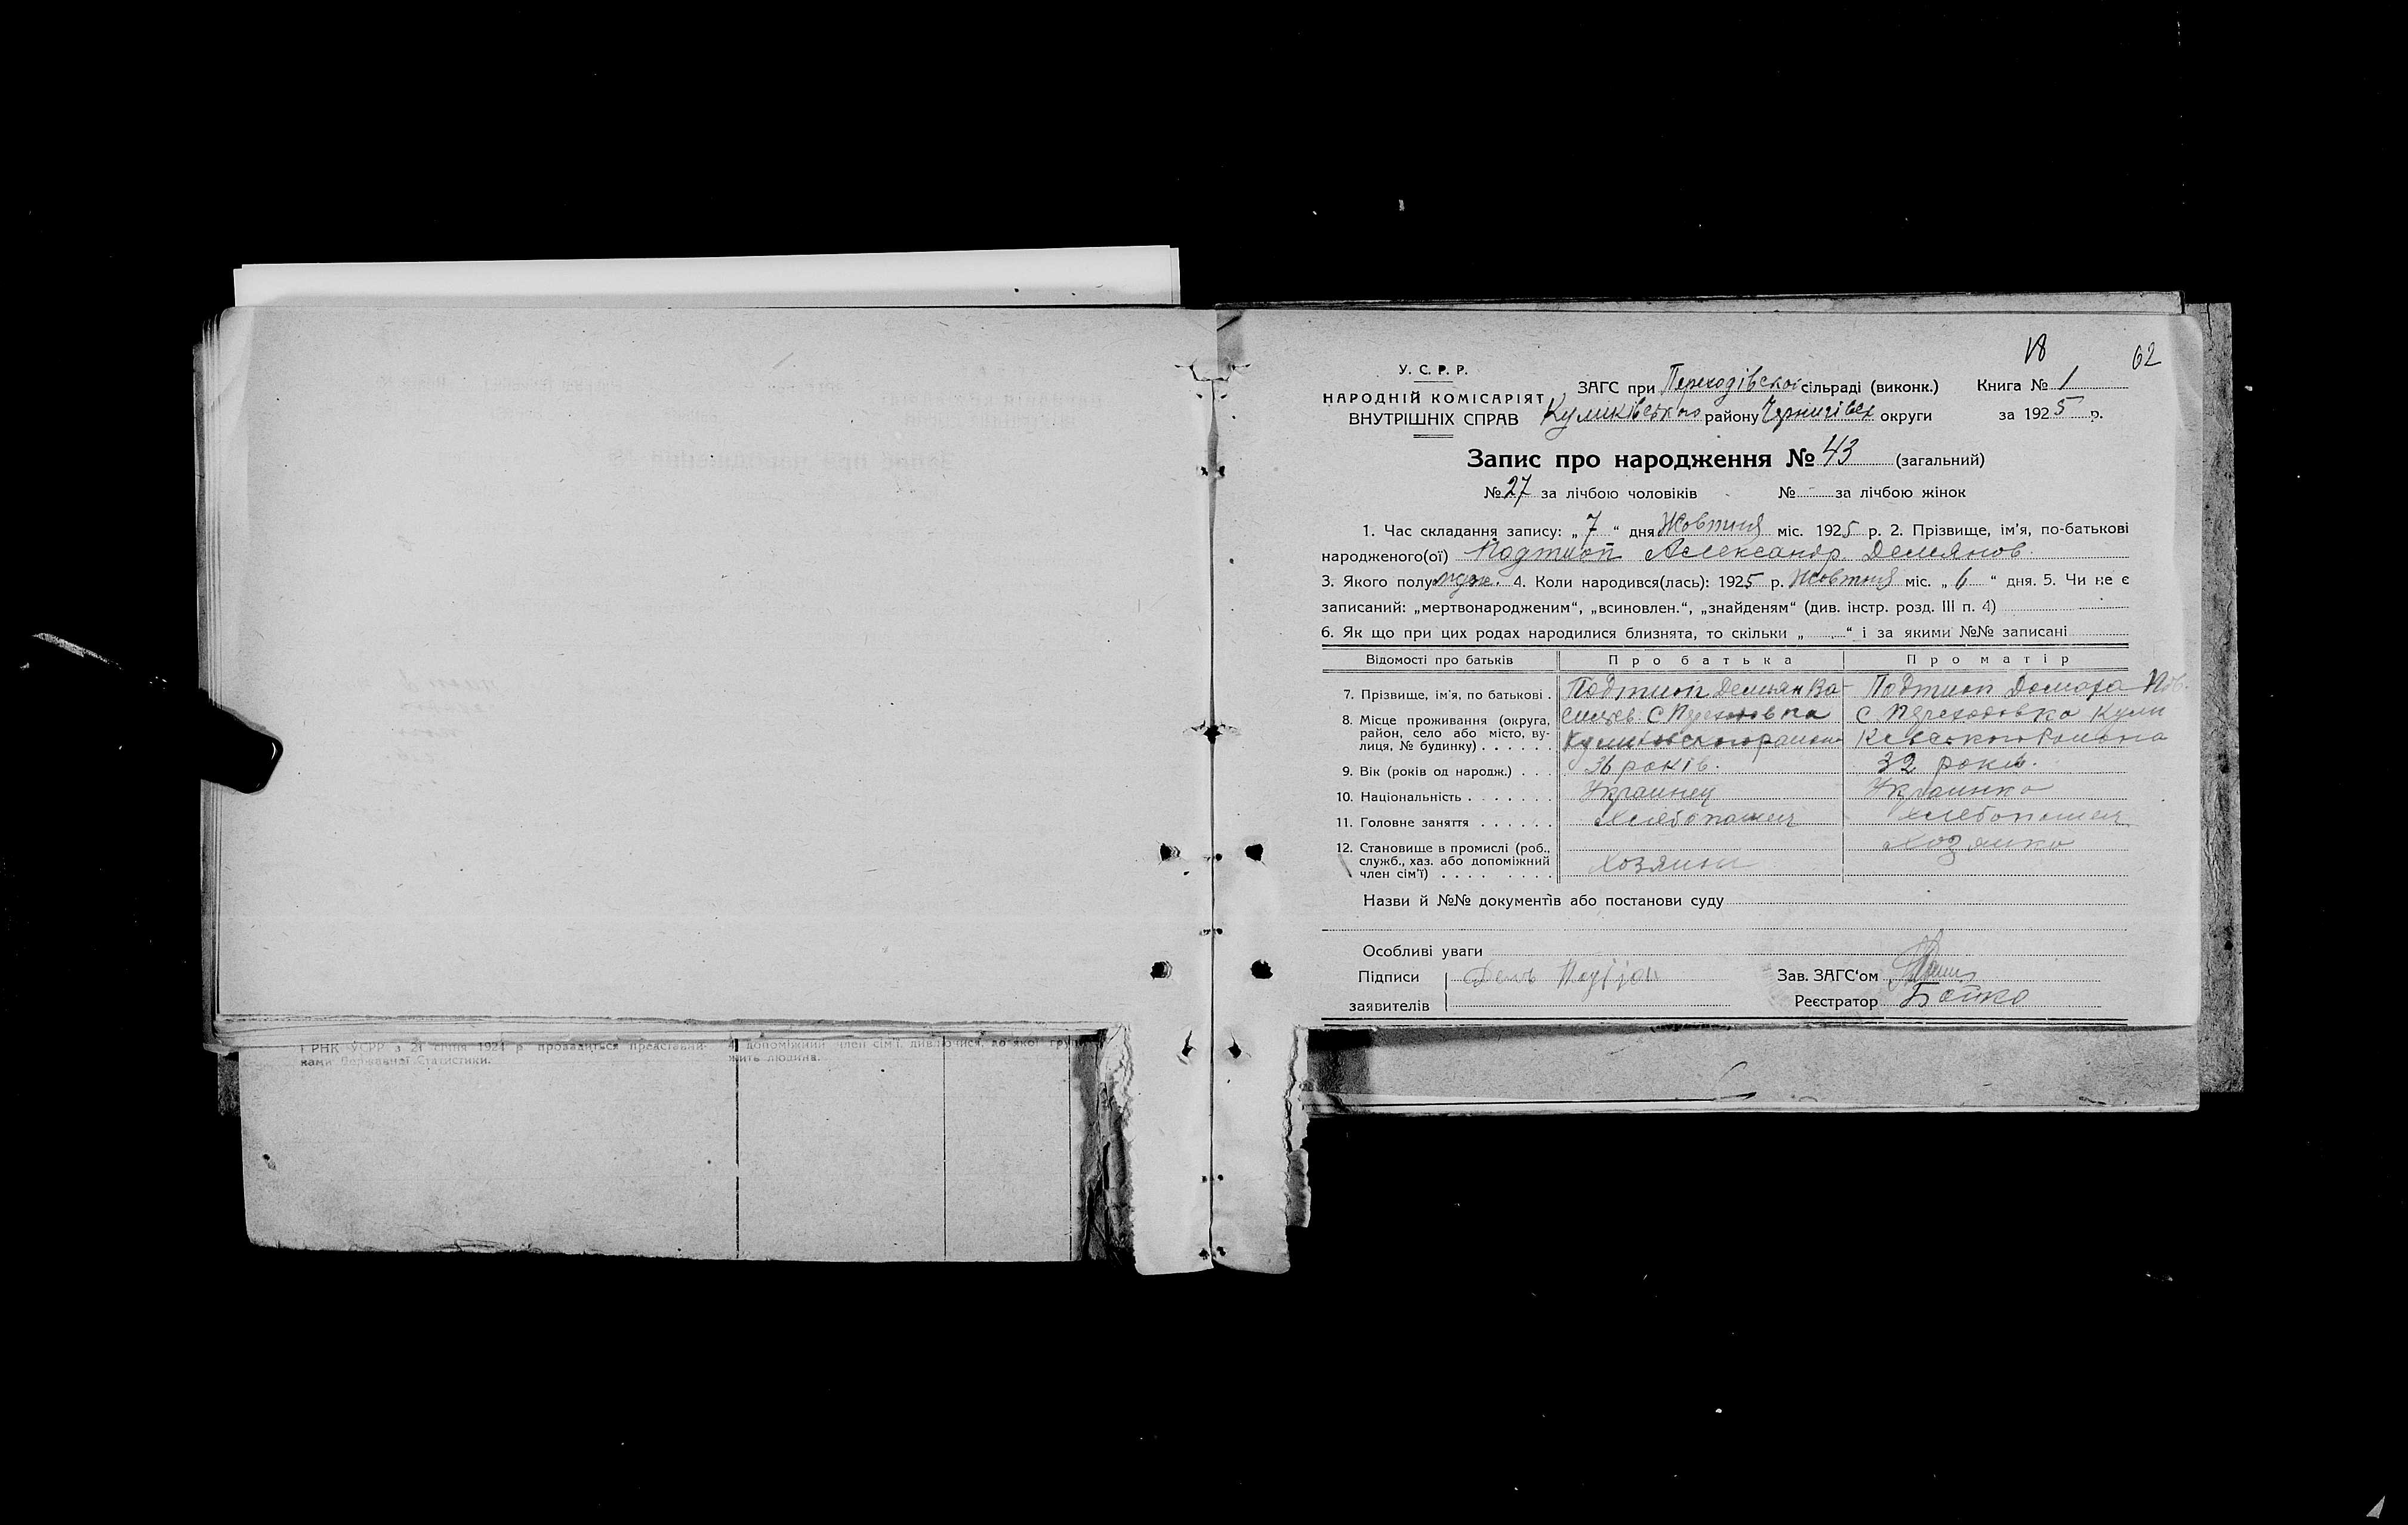 18
62
У. С. Р. Р.
НАРОДНІЙ КОМІСАРІЯТ
ВНУТРІШНІХ СПРАВ
ЗАГС при Переходівской сільраді (виконк.)
Куликівського району Чернигівск округи
Книга № 1
за 1925 р.
Запис про народження № 43 (загальний)
№ 27 за лічбою чоловіків № за лічбою жінок
1. Час складання запису: „ 7 “ дня Жовтня міс. 1925 р. 2. Прізвище, ім’я, по-батькові
народженого(ої) Подтиоп Александр Демянов.
3. Якого полу муж. 4. Коли народився(лась): 1925 р. Жовтня міс. „ 6 “ дня. 5. Чи не є
записаний: „мертвонародженим“, „всиновлен.“, „знайденям“ (див. інстр. розд. III п. 4)
6. Як що при цих родах народилися близнята, то скільки „ “ і за якими №№ записані
Відомості про батьків Про батька Про матір
7. Прізвище, ім’я, по батькові . Демьян Ва- Домаха
8. Місце проживання (округа, район, село або місто, вулиця, № будинку) . . . . . . силіев. С Переходовка Куликовского района с. Переходовка Кули
9. Вік (років од народж.) . . . 36 років. 32 років.
10. Національність . . . . . . . Украинец Украинка
11. Головне заняття . . . . . . Хлебопашец Хлебопашец
12. Становище в промислі (роб., служб., хаз. або допоміжний член сім’ї) . . . . . . . . Хозяин Хозяйка
Назви й №№ документів або постанови суду
Особливі уваги
Підписи
заявителів
Зав. ЗАГС‘ом
Реєстратор Бойко
і РНК УСРР з 21 січня 1921 р провадиться представни-
ками Державної Статистики.
допоміжний член сім’ї, дивлючися, до якої гру
жить людина.